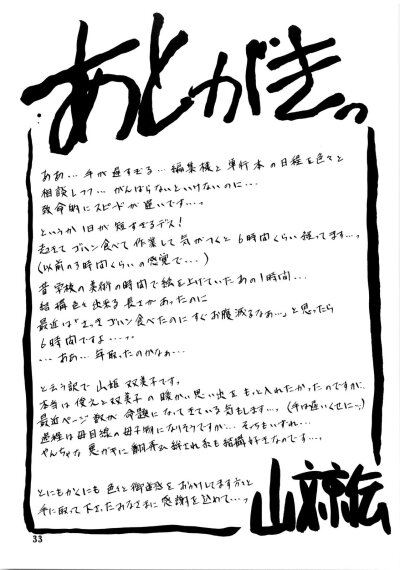 あとがきっ
ああ…手が遅すぎる…編集様と単行本の日程を色々と
相談しつつ…がんばらないといけないのに…
致命的にスピードが遅いです…っ
というか1日が短すぎるデス!
起きてゴハン食べて作業して気がつくと6時間くらい経ってます…っ
(以前の3時間くらいの感覚で…)
昔学校の美術の時間で絵を上げていたあの1時間…
結構色々出来る長さがあったのに
最近は「さっきゴハン食べたのにすぐお腹減るなぁ…」と思ったら
6時間ですよ…っ
…ああ…年取ったのかなぁ…
と云う訳で山姫双美子です。
本当は俊えと双美子の暖かい思い出をもっと入れたかったのですが、
最近ページ数が命題になってきている気もします…。(手は遅いくせに…)
過程は母目線の母子物になりそうですが…そちらもいずれ…
やんちゃな悪ガキに翻弄
とにもかくにも色々と御迷惑をおかけします方々と
手に取って下さったみなさまに感謝を込めて…っ
山文京伝
33